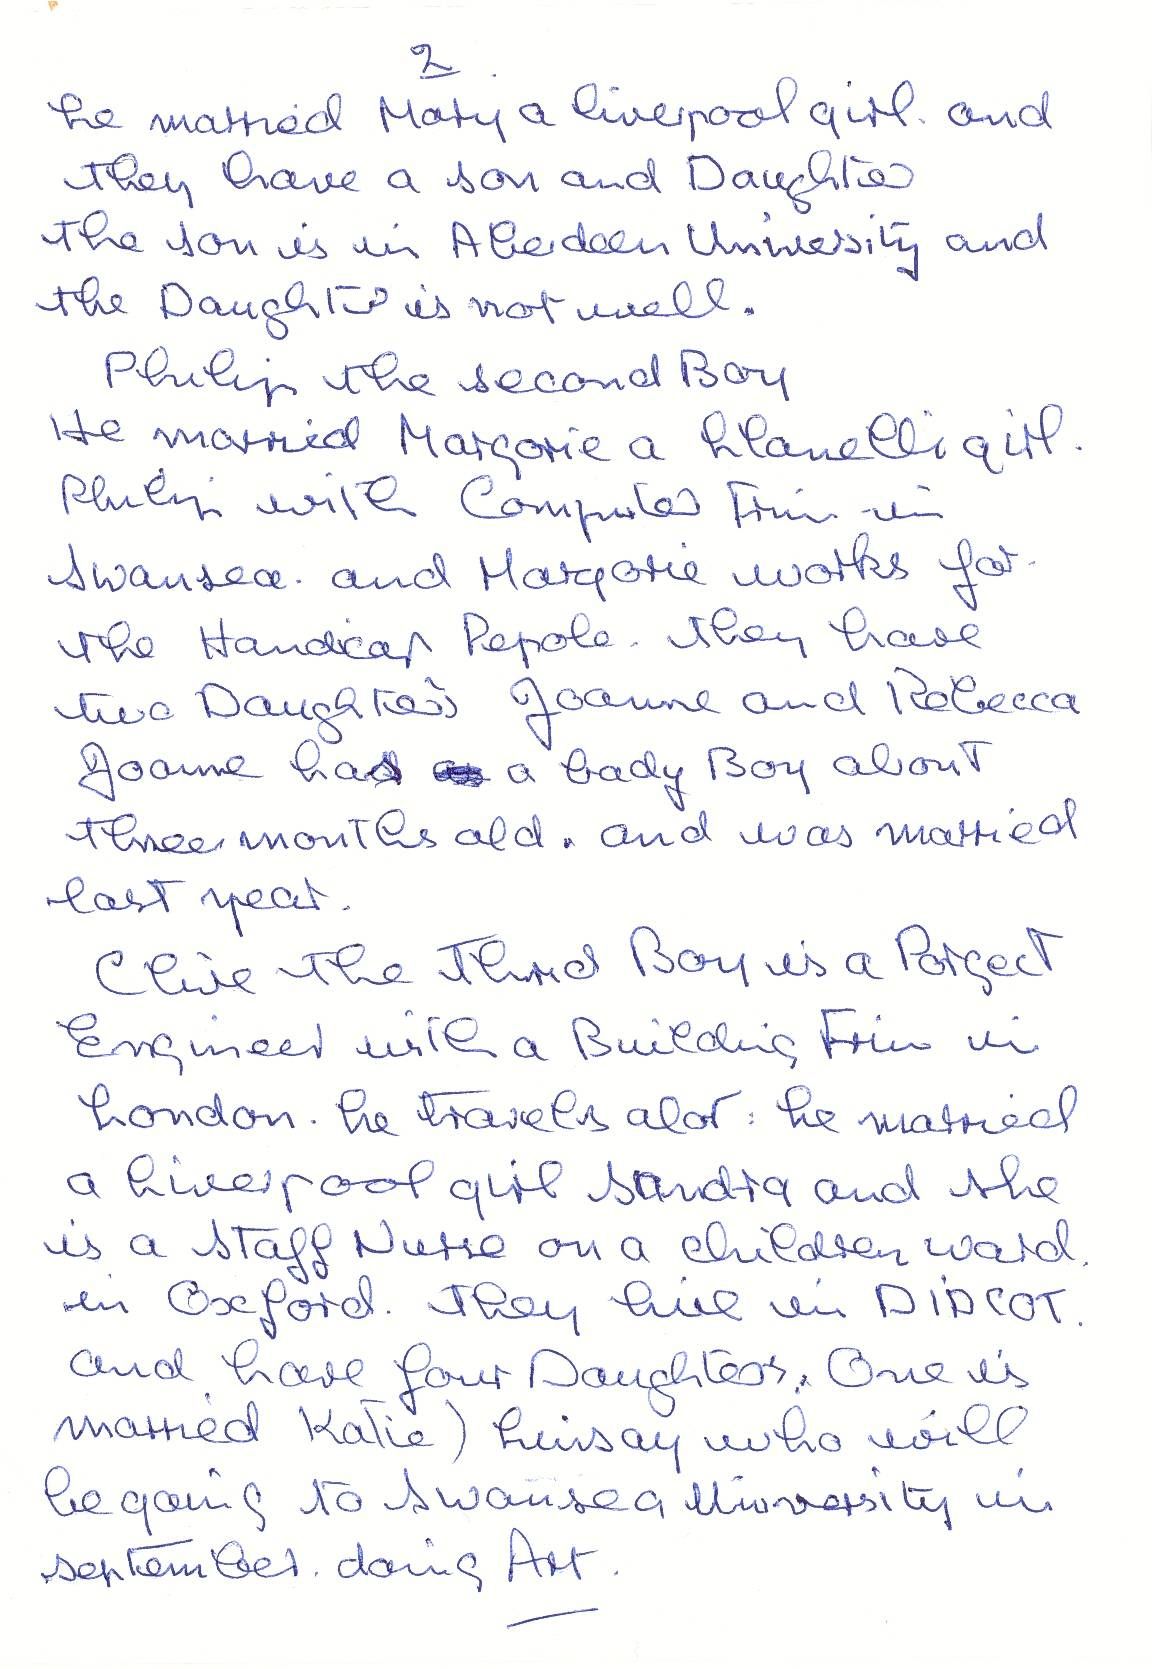 2.
he married Mary a liverpool girl. and
they have a son and Daughter
the son is in Aberdeen University and
the Daughter is not well.
Philip the second Boy
He married Margorie a Llanelli girl.
Philip with Computer Frim in
Swansea. and Margorie works for
the Handicap Pepole. they have
two Daughter's Joanne and Rebecca
Joanne has a bady Boy about
three months old. and was married
last year.
Clive the Thrid Boy is a Porgect
Engineer with a Building Frim in
London. he travels alot. he married
a Liverpool girl Sandra and she
is a Staff Nurse on a children ward.
in Oxford. they live in DIDCOT.
and have four Daughters. One is
married Katie) Linsay who will
be going to Swansea University in
september. doing Art.